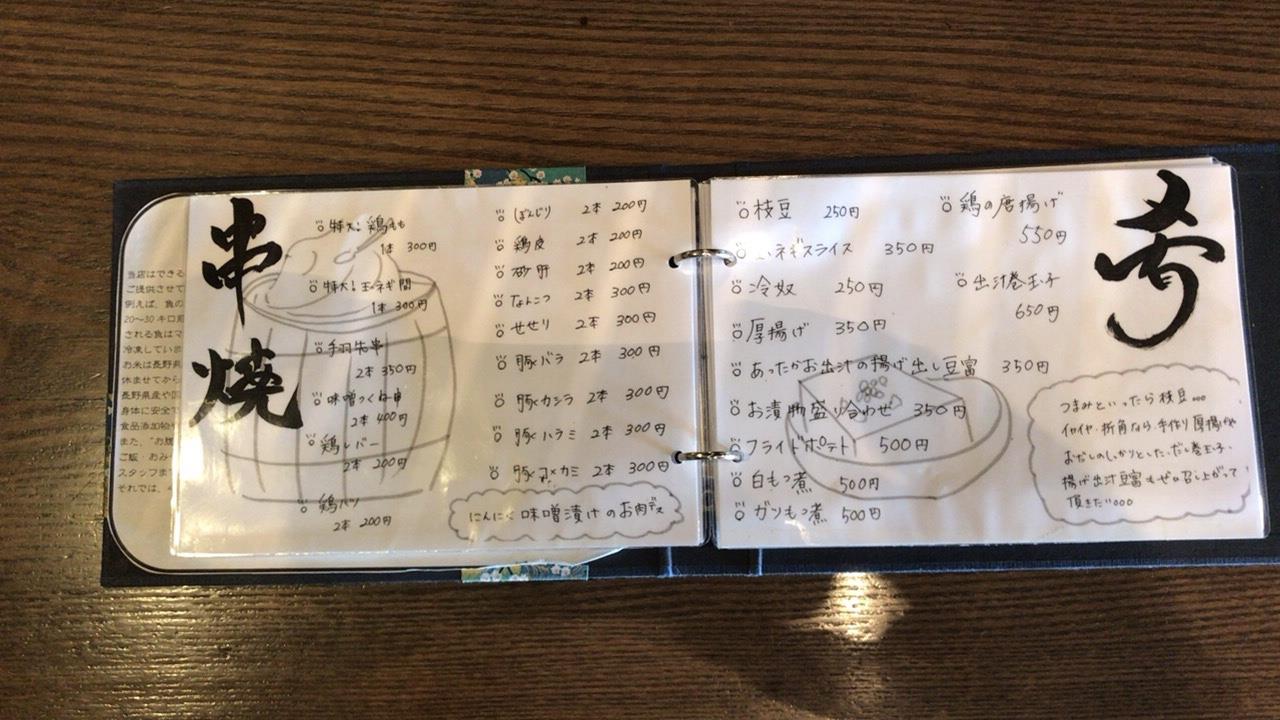 串焼
特大！鶏もも
1本 300円
特大！玉ネギ間
1本 300円
手羽先串
2本 350円
味噌つくね串
2本 400円
鶏レバー
2本 200円
鶏ハツ
2本 200円
ぼんじり 2本 200円
鶏皮 2本 200円
砂肝 2本 200円
なんこつ 2本 300円
せせり 2本 300円
豚バラ 2本 300円
豚カシラ 2本 300円
豚ハラミ 2本 300円
豚コメカミ 2本 300円
にんにく味噌漬けのお肉デス
当店はできる
ご提供させて
例えば、魚の
20〜30キロ
される魚はマ
冷凍してい
お米は長野県
休ませてから
長野県産や
身体に安全で
食品添加物や
また、"お
ご飯・おみ
スタッフま
それでは、
肴
枝豆 250円
ネギスライス 350円
冷奴 250円
厚揚げ 350円
あったかお出汁の揚げ出し豆富 350円
お漬物盛り合わせ 350円
フライドポテト 500円
白もつ煮 500円
ガツもつ煮 500円
鶏の唐揚げ
550円
出汁巻玉子
650円
つまみといったら枝豆...
イヤイヤ・折角なら、手作り厚揚げや
おだしのしっかりとした、だし巻玉子、
揚げ出汁豆富もぜひ召し上がって
頂きたい...